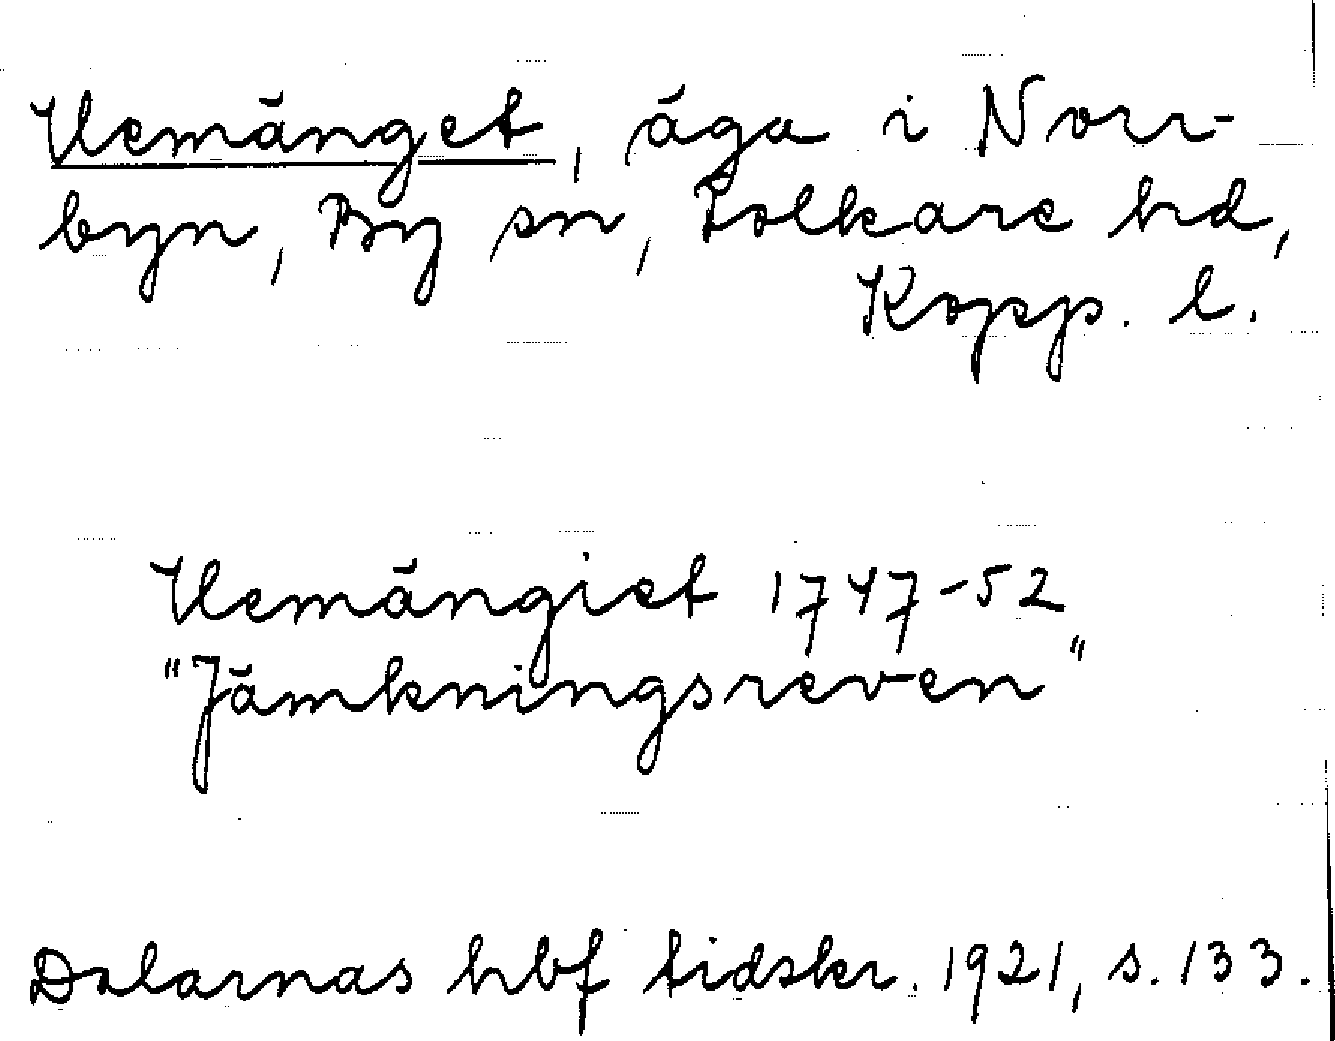 Vemänget, äga i Norr-
byn, By sn, Folkare hd,
Kopp. l.
Vemängiet 1747-52
"Jämkningsreven"
Dalarnas hbf tidskr. 1921, s. 133.